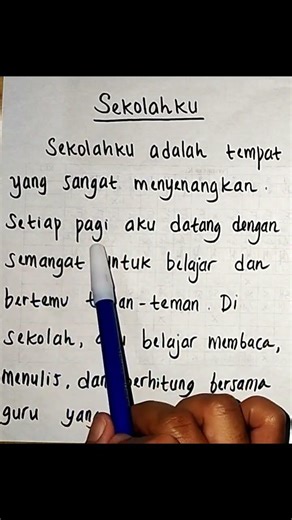 Sekolahku
Sekolahku adalah tempat
yang sangat menyenangkan.
Setiap pagi aku datang dengan
semangat untuk belajar dan
bertemu teman-teman. Di
sekolah, belajar membaca,
menulis, dan berhitung bersama
guru yang